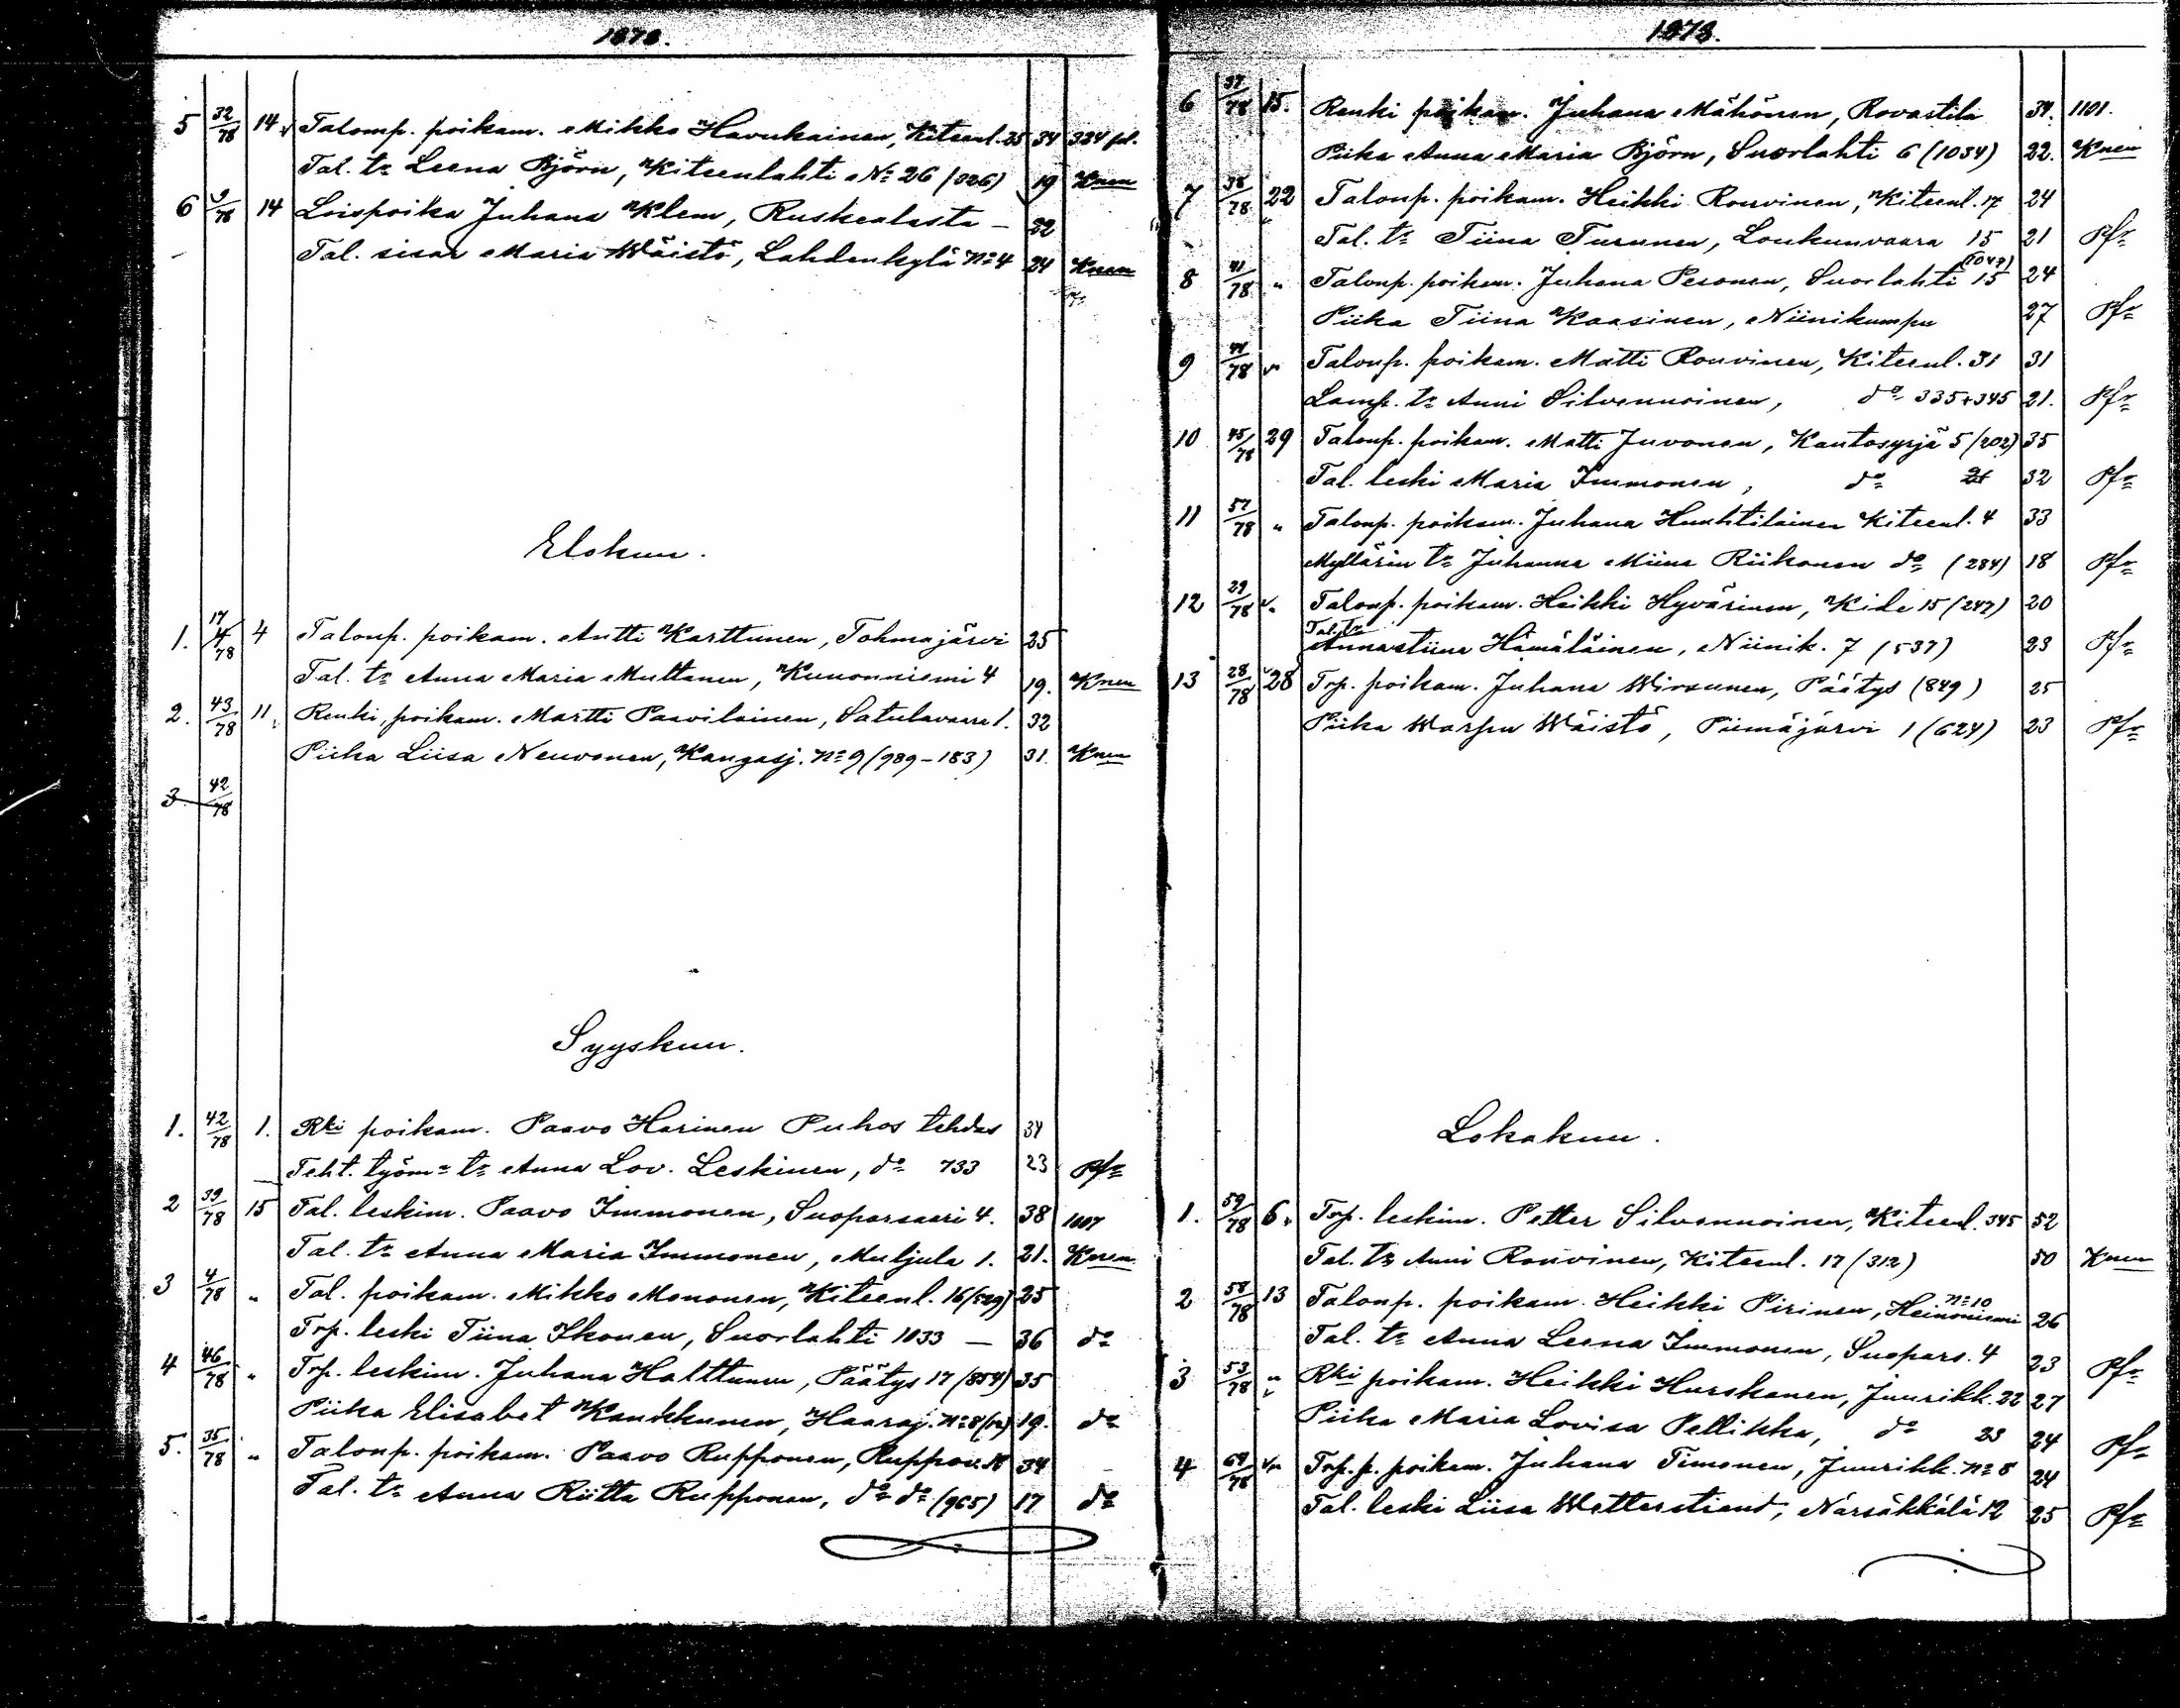 1878.
5 32/78 14 Talonp. poikam. Mikko Havukainen, Kiteenl. 25 34 334 pl.
Tal. tr Leena Björn, Kiteenlahti No 26 (326) 19 Knen
6 9/78 14 Loispoika Juhana Klem, Ruskealasta — 22
Tal. sisar Maria Wäistö, Lahdenkylä No 4 24 Knen
Elokuu.
1. 17/78 4 Talonp. poikam. Antti Karttunen, Tohmajärvi 25
Tal. tr Anna Maria Multanen, Kunonniemi 4 19. Knen
2. 43/78 11 Renki, poikam. Martti Paavilainen, Satulavaara 1. 32
Piika Liisa Neuvonen, Kangasj. No 9 (989-183) 31. Knen
3. 42/78
Syyskuu.
1. 42/78 1. Rki poikam. Paavo Harinen Puhos tehdas 34
Teht. työm. tr Anna Lov. Leskinen, do 733 23 Pfr
2 39/78 15 Tal. leskim. Paavo Immonen, Suoparsaari 4. 38 1007
Tal. tr Anna Maria Immonen, Muljula 1. 21. Knen
3 4/78 " Tal. poikam. Mikko Mononen, Kiteenl. 16 (529) 25
Trp. leski Tiina Ikonen, Suorlahti 1033 — 36 do
4 46/78 " Trp. leskim. Juhana Halttunen, Päätys 17 (854) 35
Piika Elisabet Kankkunen, Haaraj. No 8 19. do
5. 35/78 " Talonp. poikam. Paavo Rupponen, Ruppov. 34
Tal. tr Anna Riitta Rupponen, do do (965) 17 do
1878.
6 37/78 15. Renki poikam. Juhana Mähönen, Rovastila 34. 1101.
Piika Anna Maria Björn, Suorlahti 6 (1034) 22. Knen
7 38/78 22 Talonp. poikam. Heikki Rouvinen, Kiteenl. 17 24
Tal. tr Tiina Turunen, Loukunvaara 15 21 Pfr
8 41/78 " Talonp. poikam. Juhana Pesonen, Suorlahti 15 (1047) 24
Piika Tiina Kaasinen, Niinikumpu 27 Pfr
9 44/78 " Talonp. poikam. Matti Rouvinen, Kiteenl. 31 31
Lamp. tr Anni Silvennoinen, do 335+345 21. Pfr
10 45/78 29 Talonp. poikam. Matti Juvonen, Kantosyrjä 5 (202) 35
Tal. leski Maria Immonen, do 21 32 Pfr
11 57/78 " Talonp. poikam. Juhana Huuhtilainen Kiteenl. 4 33
Myllärin tr Juhanna Miina Riikonen do (284) 18 Pfr
12 29/78 " Talonp. poikam. Heikki Hyvärinen, Kide 15 (247) 20
Tal. tr Annastiina Hämäläinen, Niinik. 7 (537) 23 Pfr
13 28/78 28 Trp. poikam. Juhana Wirsunen, Päätys (849) 25
Piika Warpu Wäistö, Piimäjärvi 1 (624) 23 Pfr
Lokakuu.
1. 59/78 6. Trp. leskim. Petter Silvennoinen, Kiteenl. 345 52
Tal. tr Anni Rouvinen, Kiteenl. 17 (312) 50 Knen
2 58/78 13 Talonp. poikam. Heikki Pirinen, Heinoniemi No 10 26
Tal. tr Anna Leena Immonen, Suopars. 4 23 Pfr
3 53/78 " Rki poikam. Heikki Hurskanen, Juurikk. 22 27
Piika Maria Lovisa Pellikka, do 23 24 Pfr
4 64/78 " Trp. p. poikam. Juhana Timonen, Juurikk. No 8 24
Tal. leski Liisa Wetterstrand, Närsäkkälä 12 25 Pfr